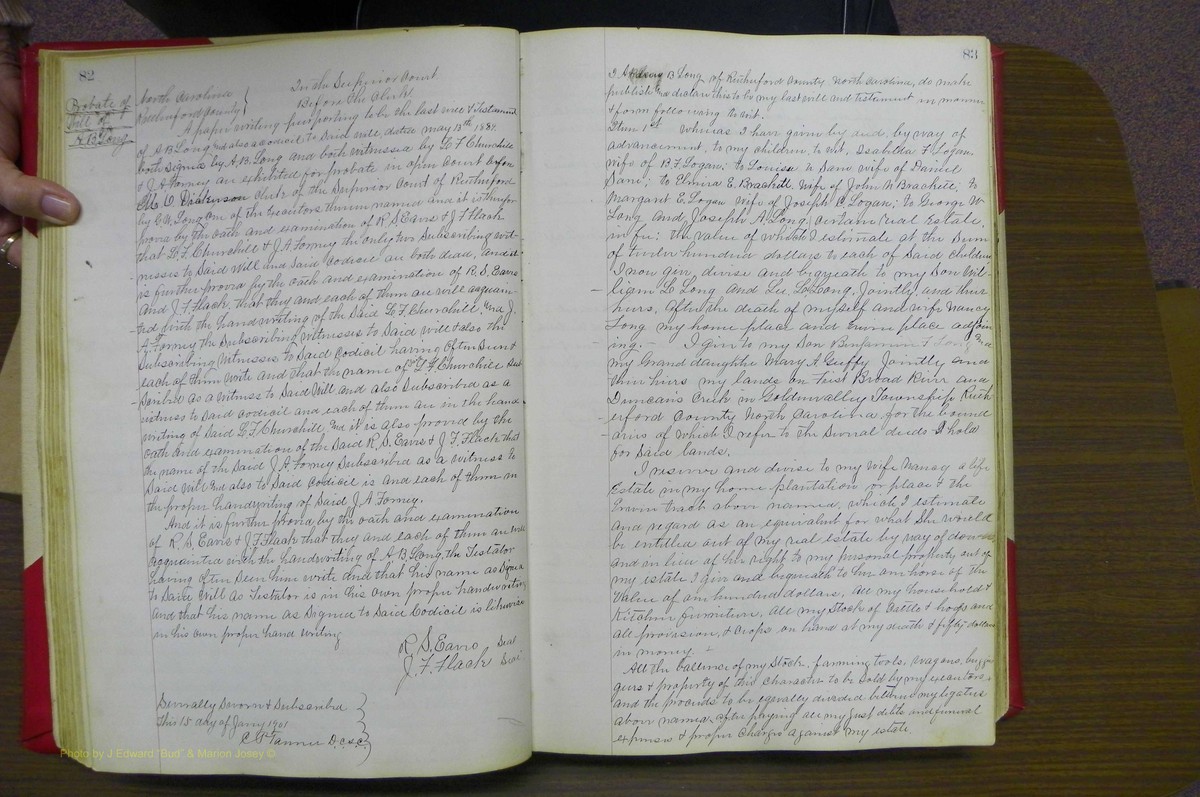 82
Probate of
Will of
A B Long
North Carolina
Rutherford County
In the Superior Court
Before the Clerk
A paper writing purporting to be the last will & Testament
of A.B. Long and also a codicil to said will, dated may 13th 1884.
both signed by A.B. Long and both witnessed by L. F. Churchill
& J.A. Forney are exhibited for probate in open Court before
M. O. Dickerson Clerk of the Superior Court of Rutherford
by G.W. Long one of the executors therein named and it is therefor
proved by the oath and examination of R S Eaves & J.F. Flack
that L.F. Churchill & J.A Forney the only two subscribing wit-
nesses to said will and said codicil are both dead, and it
is further proved by the oath and examination of R. S. Eaves
and J. F. Flack, that they and each of them are well acquain
ted with the handwriting of the said L. F. Churchill, and J.
A. Forney the subscribing witnesses to said will & also the
subscribing witnesses to said codicil having often seen
each of them write and that the name of L. F. Churchill sub
scribed as a witness to said will and also subscribed as a
witness to said codicil and each of them are in the hand
writing of said L. F. Churchill, and it is also proved by the
oath and examination of the said R. S. Eaves & J. F. Flack that
the name of the said J. A. Forney subscribed as a witness to
said will and also to said codicil is and each of them are
the proper handwriting of said J. A Forney.
And it is further proved by the oath and examination
of R. S. Eaves & J.F. Flack that they and each of them are well
acquainted with the handwriting of A. B. Long, the Testator
having often seen him write and that his name as signed
to said will as Testator is in his own proper handwriting
and that his name as signed to said Codicil is likewise
in his own proper hand writing
R. S. Eaves Seal
J. F. Flack Seal
Severally Sworn & Subscribed
this 15 day of Jany 1901
Tanner D.C.S.C.
83
I B Long of Rutherford County North Carolina, do make
publish and declare this to be my last will and testament in manner
& form following to wit.
Item 1st Whereas I have given by deed, by way of
advancement, to my children, to wit, Isabella F Logan
wife of B. F Logan; to Louisa wife of Daniel
to Elmira E. Brackett wife of John N Brackett; to
Margaret E. Logan wife of Joseph C. Logan; to George W
Long and Joseph A. Long, certain real estate,
in fee; the value of which I estimate at the sum
of twelve hundred dollars to each of said children
I now give devise and bequeath to my Son Wil
liam L Long and Long, Jointly, and their
heirs, after the death of myself and wife Nancy
Long my home place and Erwin place adjoin
ing. - I give to my Son Benjamin F Long and
my Grand daughter Mary A Guffy Jointly and
their heirs my lands on First Broad River and
Duncans Creek in Goldenvalley Township Ruth
erford County North Carolina, for the bound
aries of which I refer to the several deeds I hold
for said lands.
I reserve and devise to my wife Nancy a life
Estate in my home plantation or place & the
Erwin tract above named, which I estimate
and regard as an equivalent for what she would
be entitled out of my real estate by way of dower
and in lieu of her right to my personal property out of
my estate I give and bequeath to her one horse of the
value of one hundred dollars, all my household &
Kitchen furniture, all my stock of cattle & hogs and
all provision, & crops on hand at my death & fifty dollars
in money.
All the ballance of my stock, farming tools, wagons, bugg
gies & property of this character to be sold by my executors,
and the proceeds to be equally divided between my legatees
above named, after paying all my just debts and funeral
expenses & proper charges against my estate.
Photo by J Edward "Bud" & Marion Josey ©